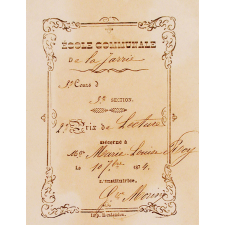 ÉCOLE COMMUNALE
de la Jarrie
1er Cours
1re SECTION.
1er Prix de Lecture
DÉCERNÉ à
Mlle Marie Louise
Le 10 7bre 1874.
L'Institutrice,